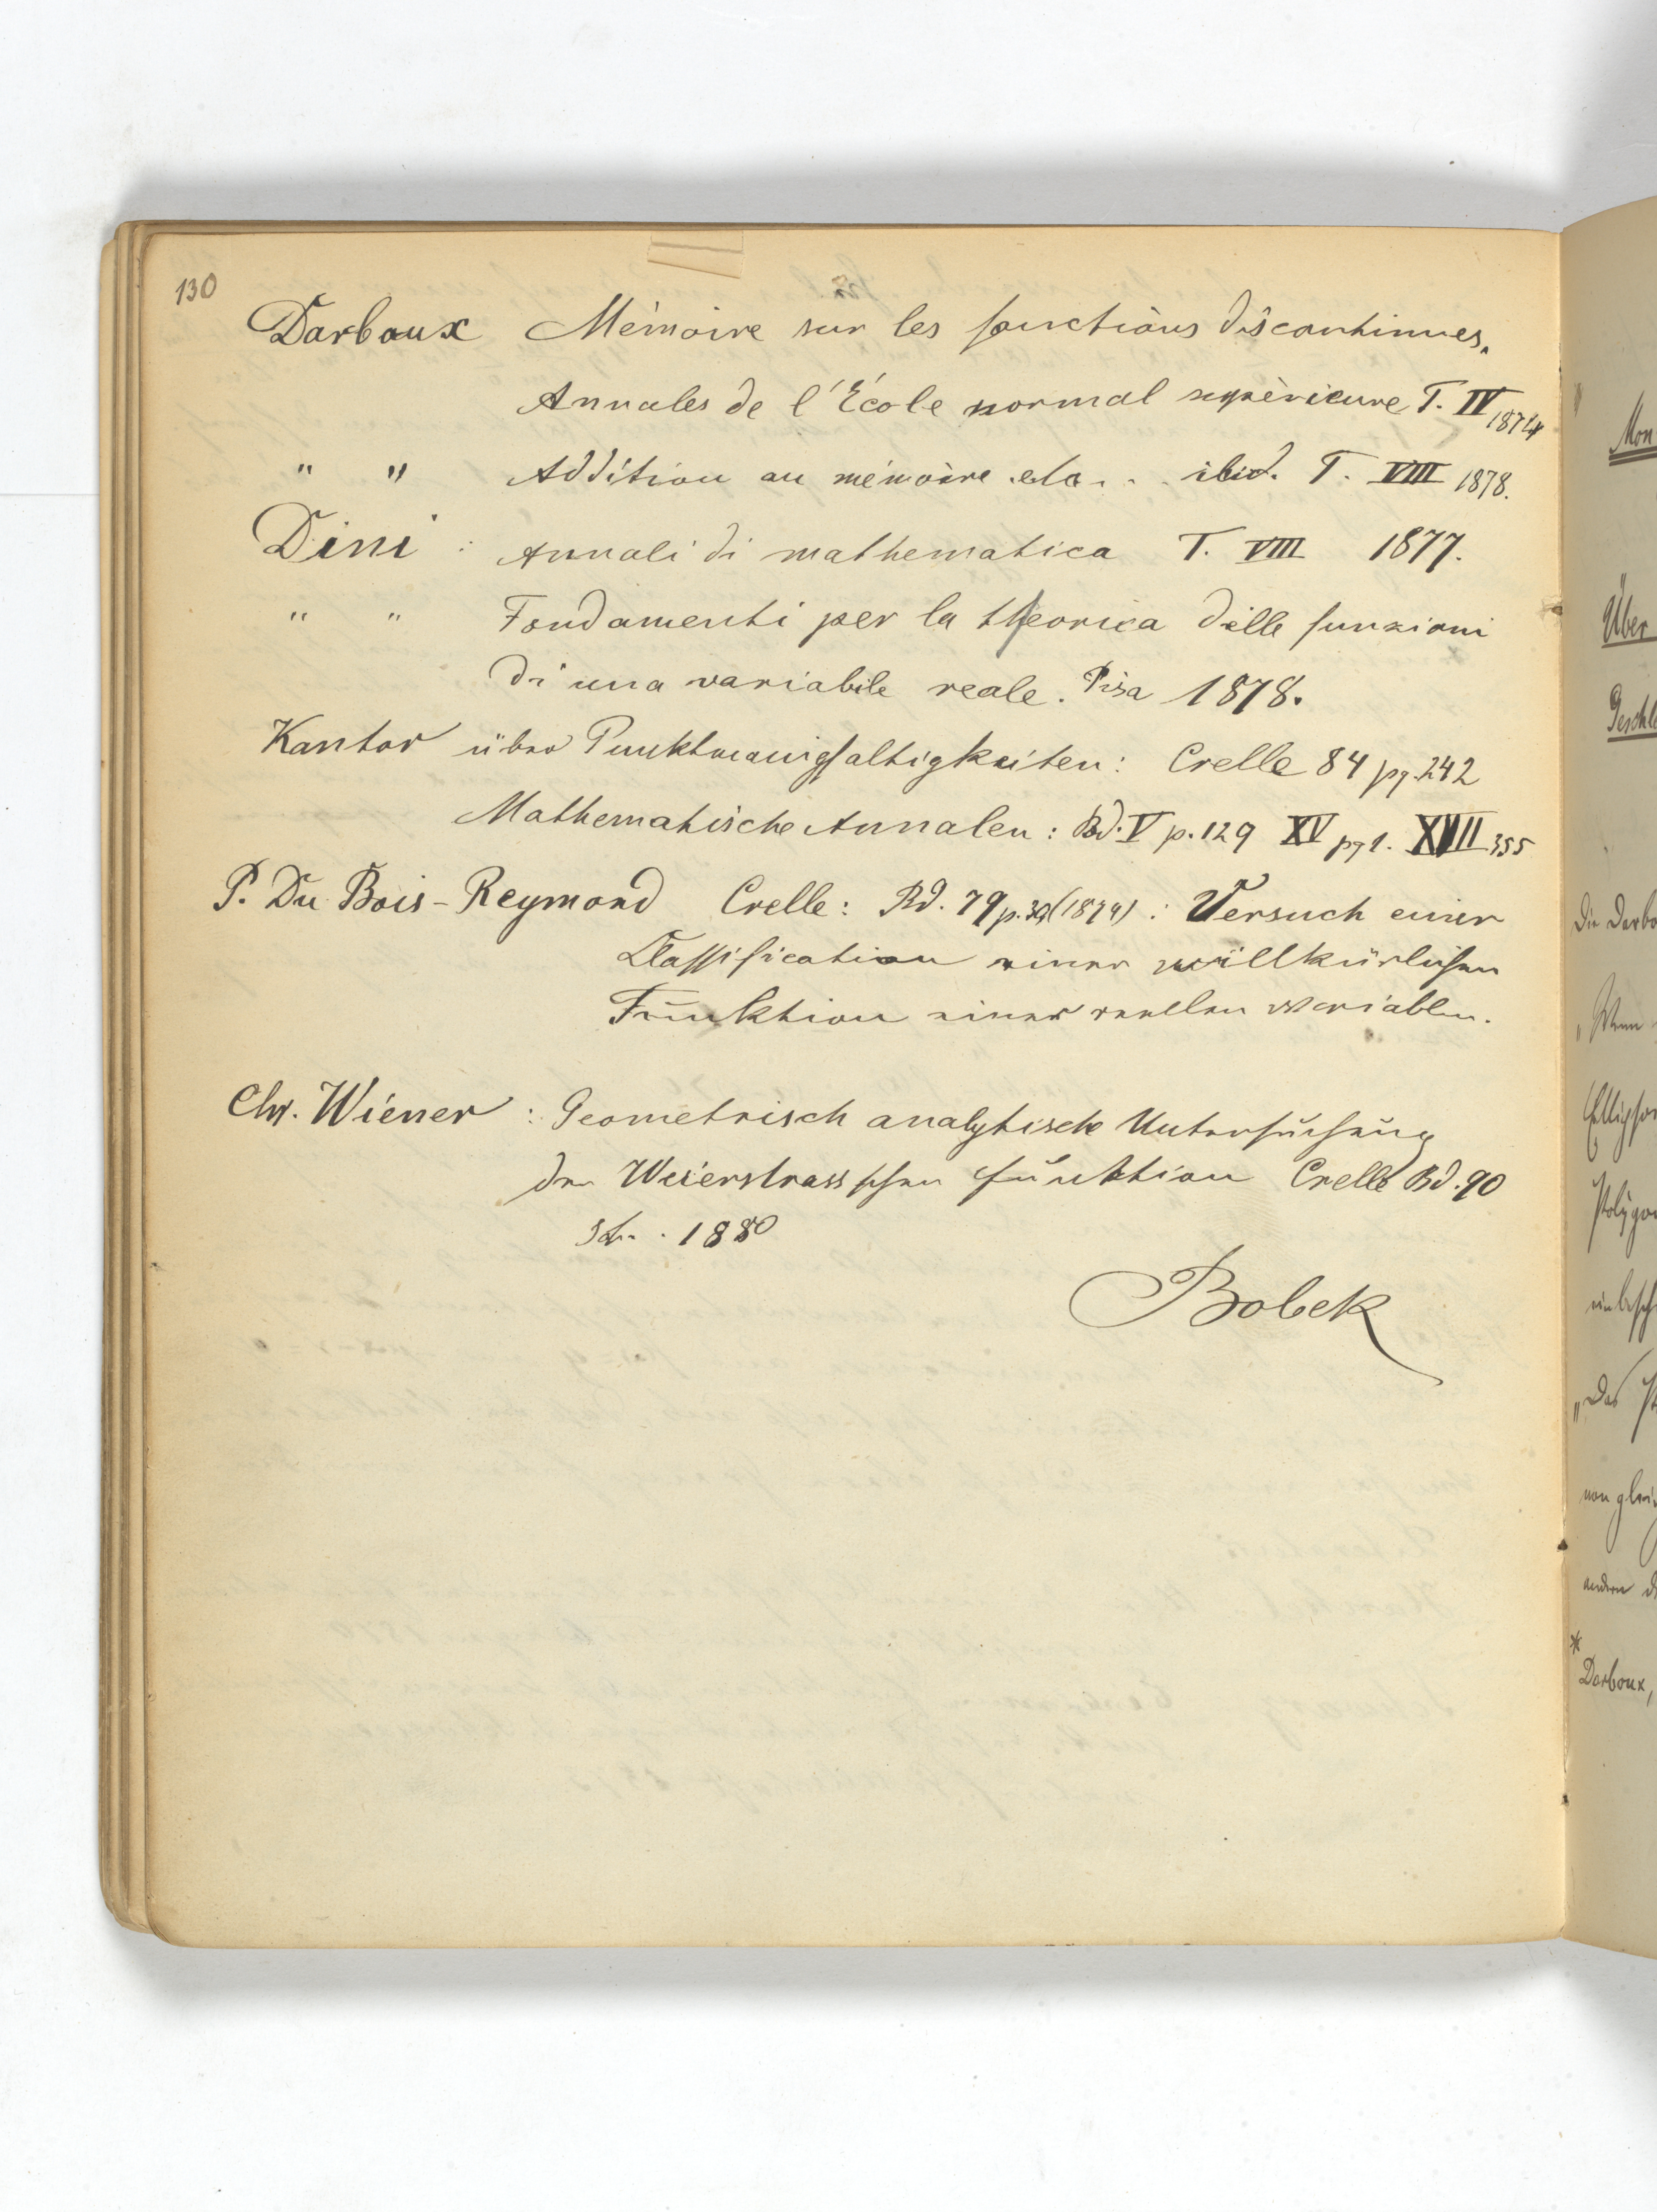 130
Darboux Mémoire sur les fonctions discontinues.
Annales de l'École normal supèrieure T. IV 1874
" " Addition au mémoire etc. . . ibid. T. VIII 1878.
Dini : Annali di mathematica T. VIII 1877.
" " Fondamenti per la theorica delle funzioni
di una variabile reale. Pisa 1878.
Kantor über Punktmanigfaltigkeiten: Crelle 84 pg. 242
Mathematische Annalen: Bd. V p. 129 XV pg 1. XVII 355
P. Du Bois-Reymond Crelle: Bd. 79 p. (1874) : Versuch einer
Classification einer willkürlichen
Funktion einer reellen Variablen.
Chr. Wiener : Geometrisch analytische Untersuchung
der Weierstrassschen Funktion Crelle Bd. 90
1880
Bobek
Mon
Über
Die Darbo
„Wenn
Ellipso
Polygo
einbesch
„Das
von glei
andern
*
Darboux,